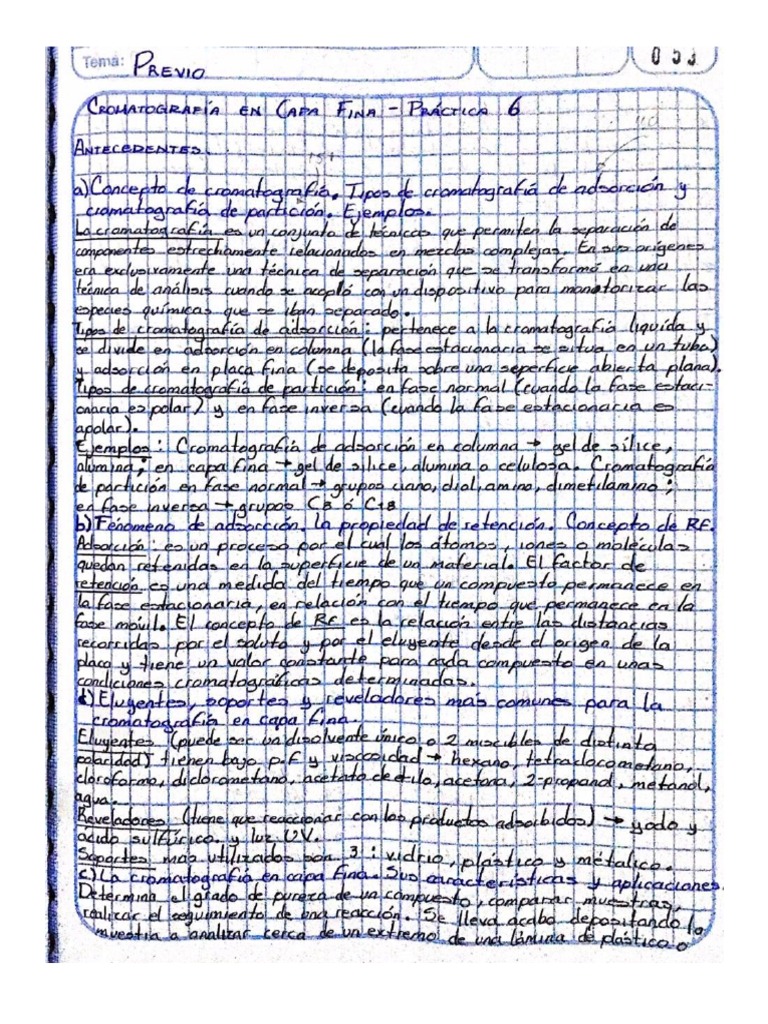 Tema: PREVIO
053
CROMATOGRAFÍA EN CAPA FINA - PRÁCTICA 6
ANTECEDENTES.
a) Concepto de cromatografía. Tipos de cromatografía de adsorción y
cromatografía de partición. Ejemplos.
La cromatografía es un conjunto de técnicas que permiten la separación de
componentes estrechamente relacionados en mezclas complejas. En sus orígenes
era exclusivamente una técnica de separación que se transformó en una
técnica de análisis cuando se acopló con un dispositivo para monotorizar las
especies químicas que se iban separado.
Tipos de cromatografía de adsorción: pertenece a la cromatografía liquida y
se divide en adsorción en columna (la fase estacionaria se situa en un tubo)
y adsorción en placa fina (se deposita sobre una superficie abierta plana).
Tipos de cromatografía de partición: en fase normal (cuando la fase estaci-
onaria es polar) y en fase inversa (cuando la fase estacionaria es
apolar).
Ejemplos: Cromatografía de adsorción en columna → gel de sílice,
alumina; en capa fina → gel de silice, alumina o celulosa. Cromatografía
de partición en fase normal → grupos ciano, diol, amino, dimetilamino;
en fase inversa → grupos C8 ó C18
b) Fenómeno de adsorción. La propiedad de retención. Concepto de RF.
Adsorción: es un proceso por el cual los átomos, iones o moléculas
quedan retenidas en la superficie de un material. El factor de
retención es una medida del tiempo que un compuesto permanece en
la fase estacionaria, en relación con el tiempo que permanece en la
fase móvil. El concepto de RF es la relación entre las distancias
recorridas por el soluto y por el eluyente desde el origen de la
placa y tiene un valor constante para cada compuesto en unas
condiciones cromatográficas determinadas.
d) Eluyentes, soportes y reveladores más comunes para la
cromatografía en capa fina.
Eluyentes (puede ser un disolvente único o 2 miscibles de distinta
polaridad) tienen bajo p.f y viscosidad → hexano, tetraclocometano,
cloroformo, diclorometano, acetato de etilo, acetona, 2-propanol, metanol,
agua.
Reveladores (tiene que reaccionar con los productos adsorbidos) → yodo y
ácido sulfúrico. y luz UV.
Soportes más utilizados son 3: vidrio, plástico y métalico.
c) La cromatografía en capa fina. Sus características y aplicaciones.
Determina el grado de pureza de un compuesto, comparar muestras,
realizar el seguimiento de una reacción. Se lleva acabo depositando la
muestra a analizar cerca de un extremo de una lámina de plástico o